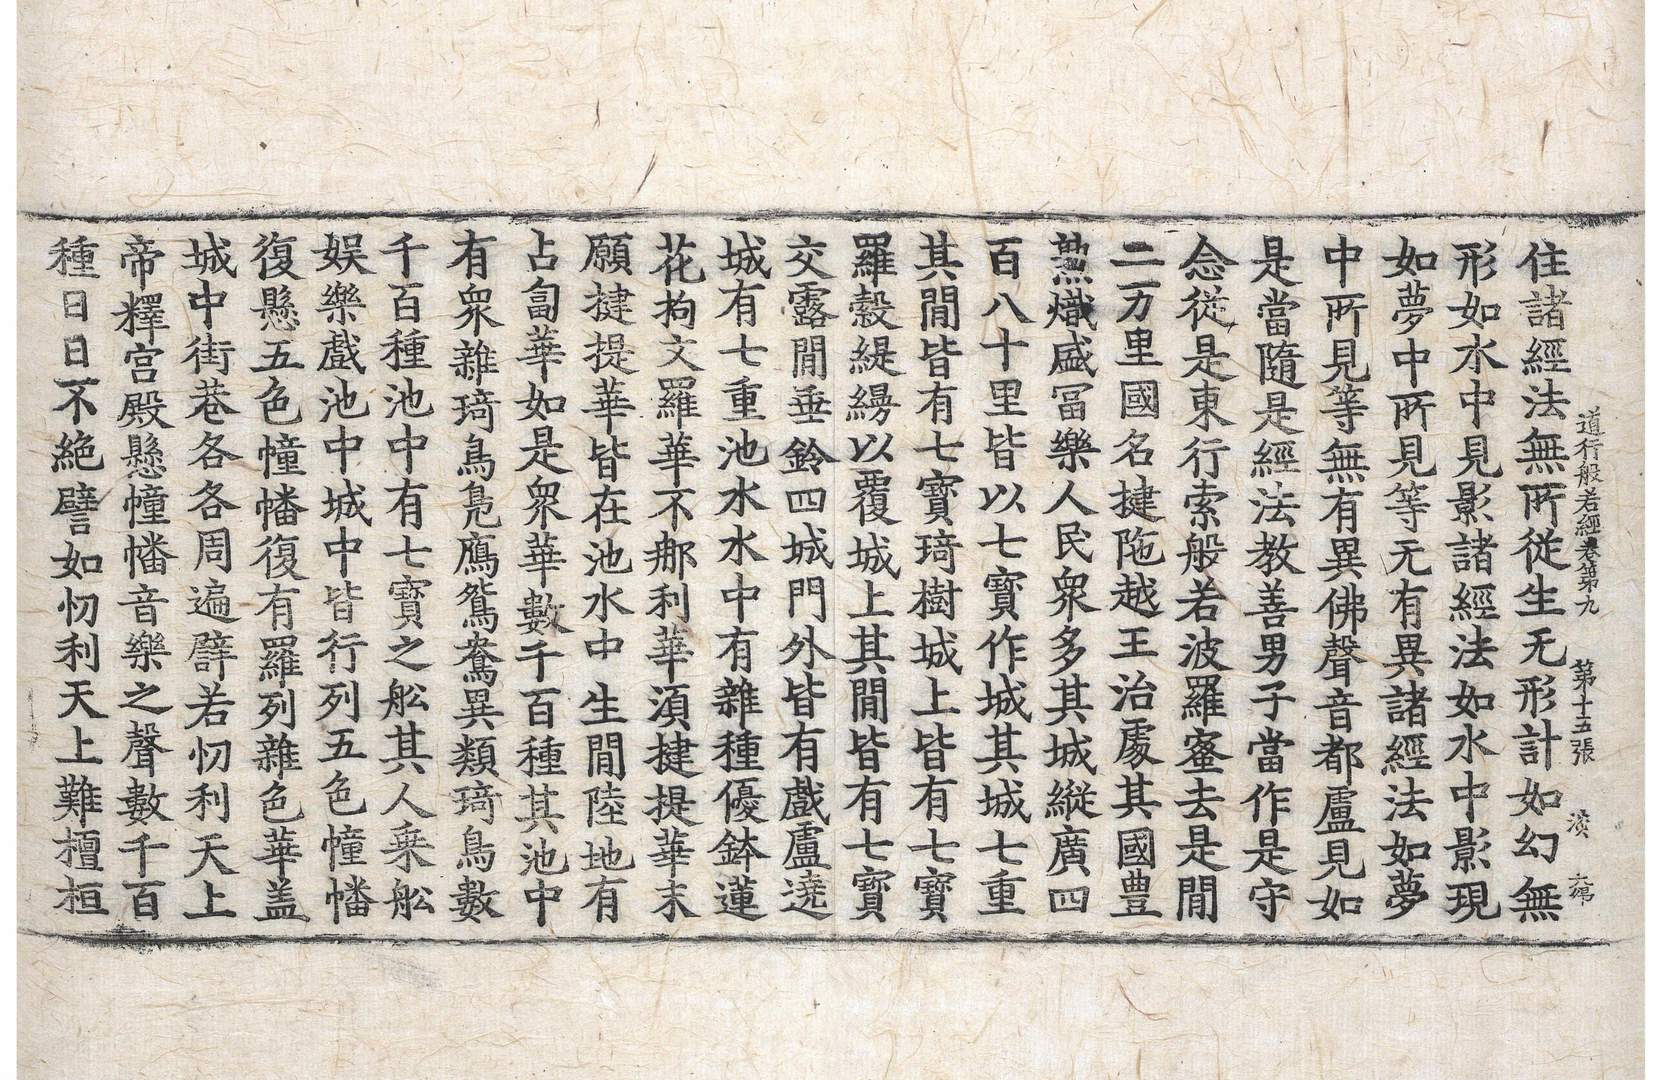 道行般若經卷第九 第十五張 淡
住諸經法無所從生无形計如幻無
形如水中見影諸經法如水中影現
如夢中所見等无有異諸經法如夢
中所見等無有異佛聲音都盧見如
是當隨是經法教善男子當作是守
念從是東行索般若波羅蜜去是閒
二万里國名揵陁越王治處其國豊
熟熾盛冨樂人民衆多其城縱廣四
百八十里皆以七寶作城其城七重
其閒皆有七寶琦樹城上皆有七寶
羅縠緹縵以覆城上其閒皆有七寶
交露閒垂鈴四城門外皆有戲盧遶
城有七重池水水中有雜種優鉢蓮
花拘文羅華不那利華湏揵提華末
願揵提華皆在池水中生閒陸地有
占匐華如是衆華數千百種其池中
有衆雜琦鳥鳬鴈鴛鴦異類琦鳥數
千百種池中有七寶之舩其人乗舩
娱樂戲池中城中皆行列五色幢幡
復懸五色幢幡復有羅列雜色華盖
城中街巷各各周遍譬若忉利天上
帝釋宫殿懸幢幡音樂之聲數千百
種日日不絶譬如忉利天上難檀桓